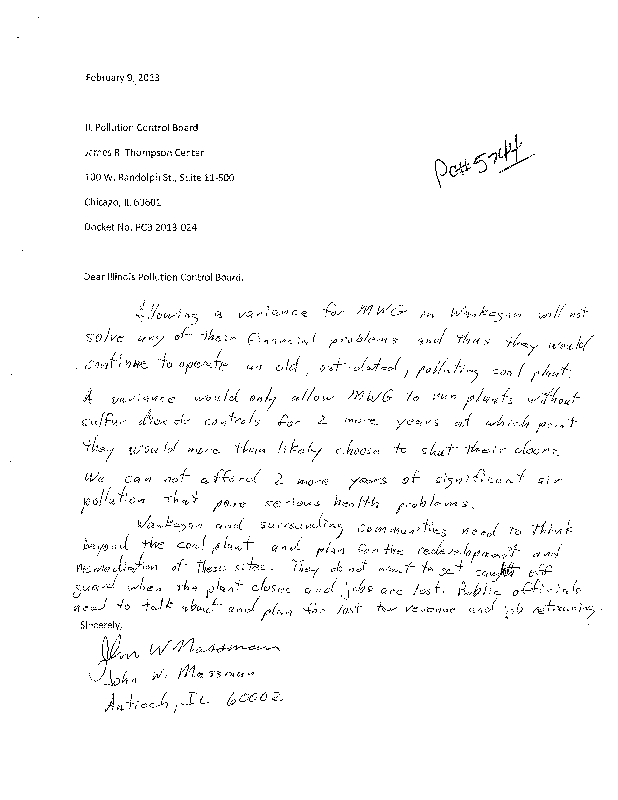 February 9, 2013
IL Pollution Control Board
James R. Thompson Center
PC#5744
100 W. Randolph St., Suite 11-500
Chicago, IL 60601
Docket No. PCB 2013-024
Dear Illinois Pollution Control Board,
Allowing a variance for MWG in Waukegan will not
solve any of their financial problems and thus they would
continue to operate an old, out-dated, polluting coal plant.
A variance would only allow MWG to run plants without
sulfur dioxide controls for 2 more years at which point
they would more than likely choose to shut their doors.
We can not afford 2 more years of significant air
pollution that pose serious health problems.
Waukegan and surrounding communities need to think
beyond the coal plant and plan for the redevelopment and
remediation of these sites. They do not want to get caught off
guard when the plant closes and jobs are lost. Public officials
need to talk about and plan for lost tax revenue and job retraining.
Sincerely,
John W Massman
John W. Massman
Antioch, IL 60002